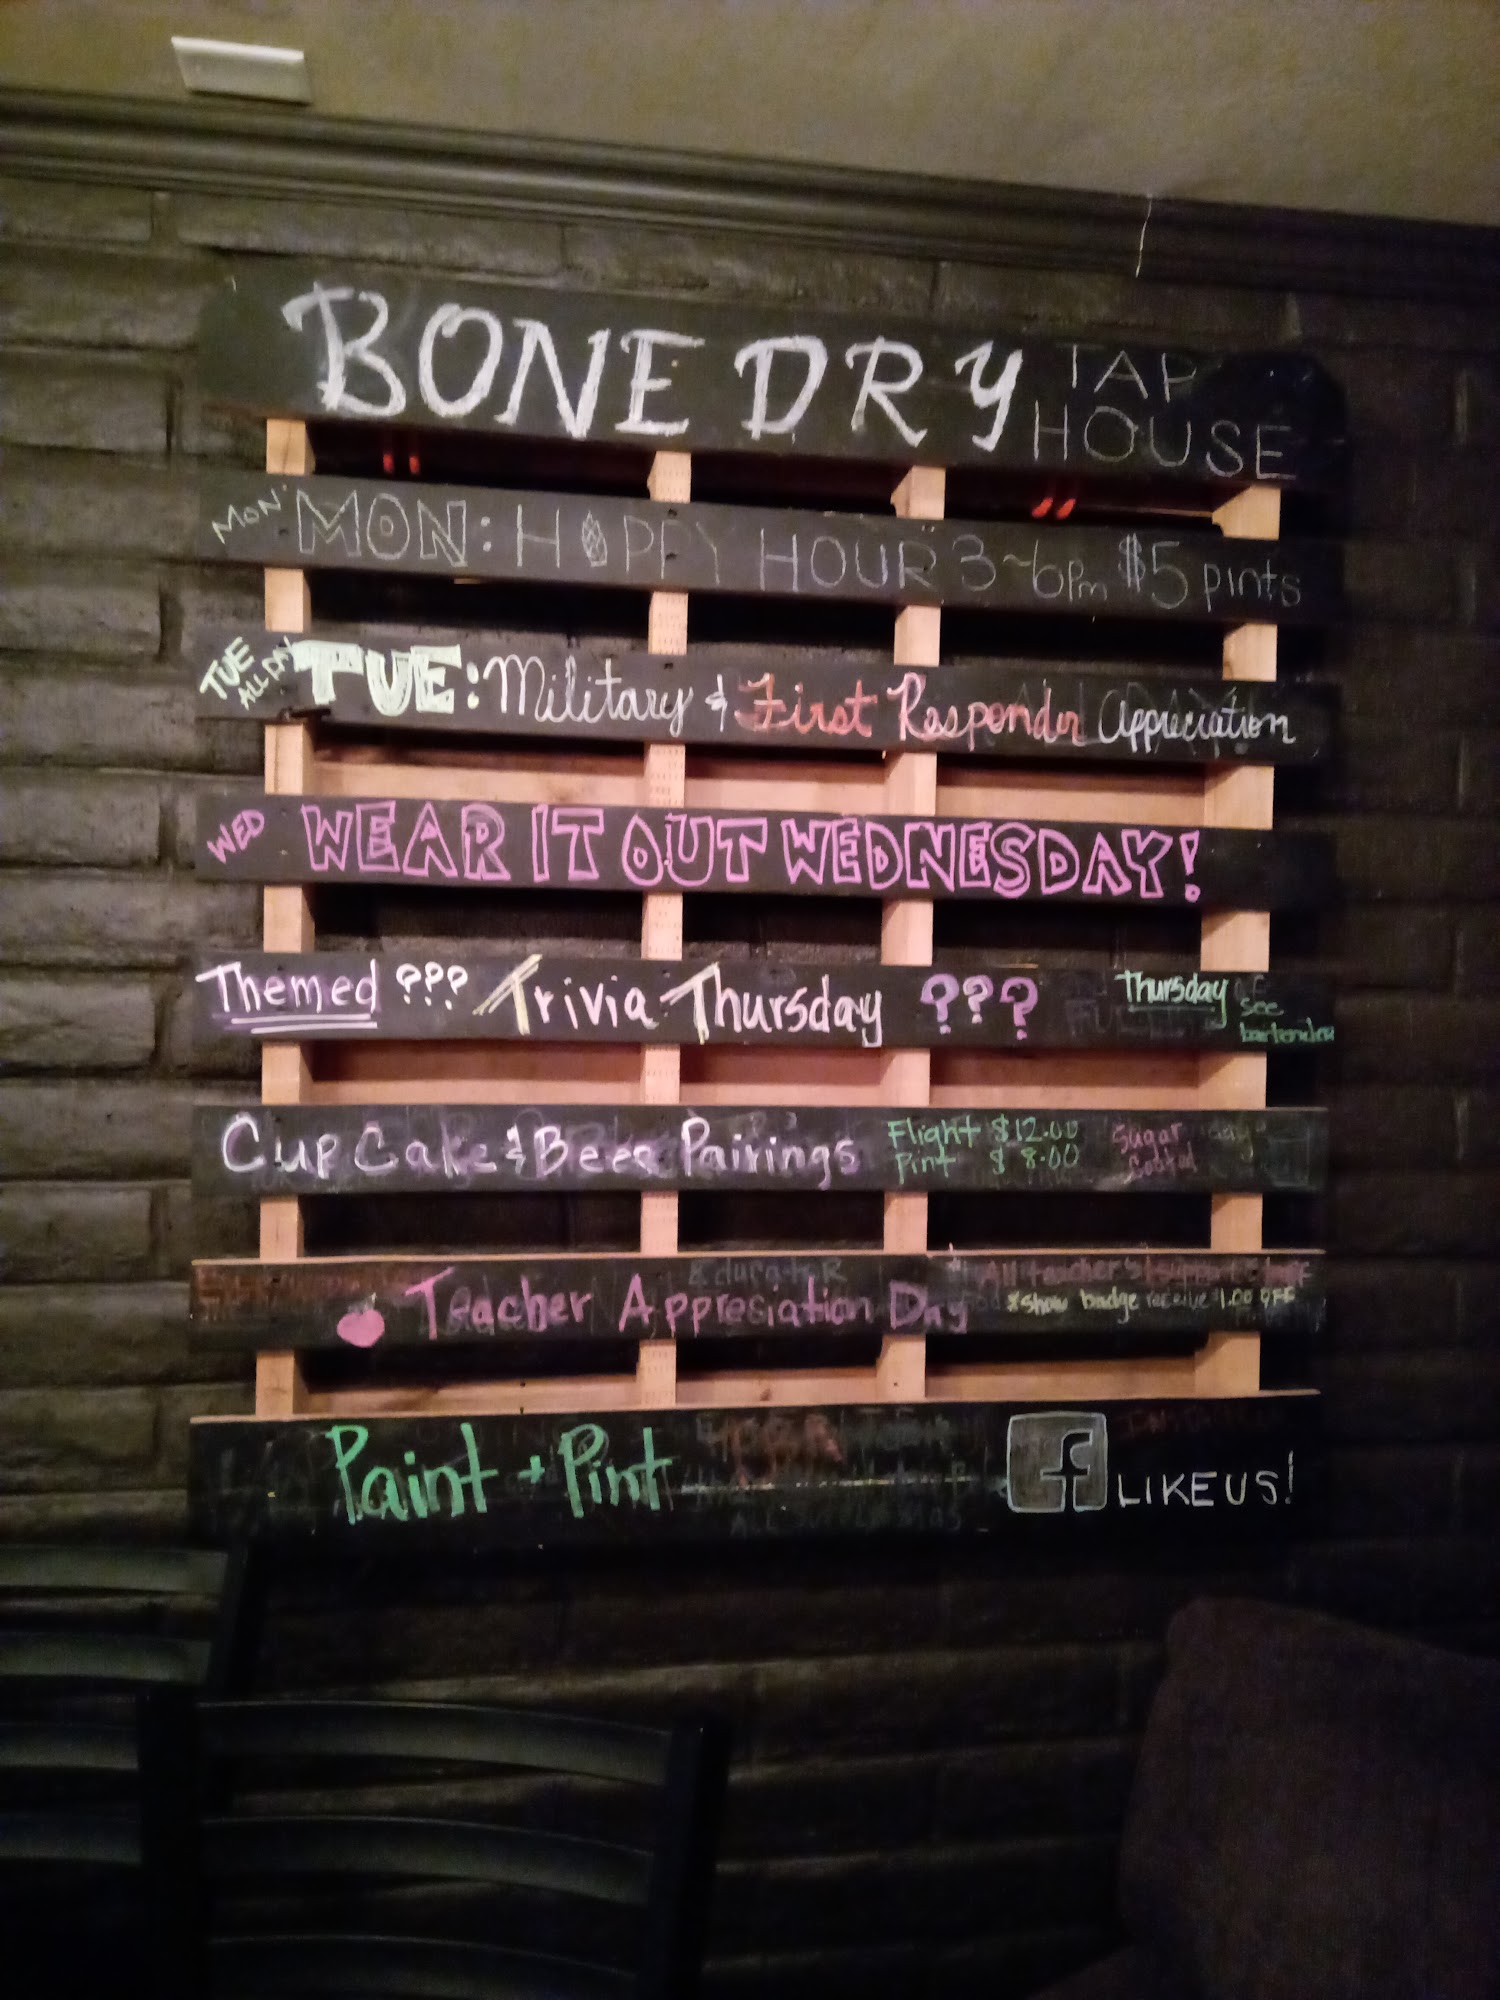 BONE DRY TAP HOUSE
MON MON: HOPPY HOUR 3~6pm $5 pints
TUE ALL DAY TUE: Military & First Responder Appreciation
WED WEAR IT OUT WEDNESDAY!
Themed ??? Trivia Thursday ??? Thursday see bartender
Cup Cake & Beer Pairings Flight $12.00 Sugar
Pint $8.00 Coated
Educator
Teacher Appresiation Day All teacher's support staff
*show badge receive $1.00 OFF
Paint + Pint f LIKE US!